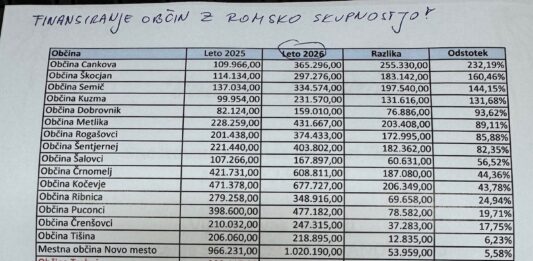 FINANSIRANJE OBČIN Z ROMSKO SKUPNOSTJO!
Občina Leto 2025 Leto 2026 Razlika Odstotek
Občina Cankova 109.966,00 365.296,00 255.330,00 232,19%
Občina Škocjan 114.134,00 297.276,00 183.142,00 160,46%
Občina Semič 137.034,00 334.574,00 197.540,00 144,15%
Občina Kuzma 99.954,00 231.570,00 131.616,00 131,68%
Občina Dobrovnik 82.124,00 159.010,00 76.886,00 93,62%
Občina Metlika 228.259,00 431.667,00 203.408,00 89,11%
Občina Rogašovci 201.438,00 374.433,00 172.995,00 85,88%
Občina Šentjernej 221.440,00 403.802,00 182.362,00 82,35%
Občina Šalovci 107.266,00 167.897,00 60.631,00 56,52%
Občina Črnomelj 421.731,00 608.811,00 187.080,00 44,36%
Občina Kočevje 471.378,00 677.727,00 206.349,00 43,78%
Občina Ribnica 279.258,00 348.916,00 69.658,00 24,94%
Občina Puconci 398.600,00 477.182,00 78.582,00 19,71%
Občina Črenšovci 210.032,00 247.315,00 37.283,00 17,75%
Občina Tišina 206.060,00 218.895,00 12.835,00 6,23%
Mestna občina Novo mesto 966.231,00 1.020.190,00 53.959,00 5,58%